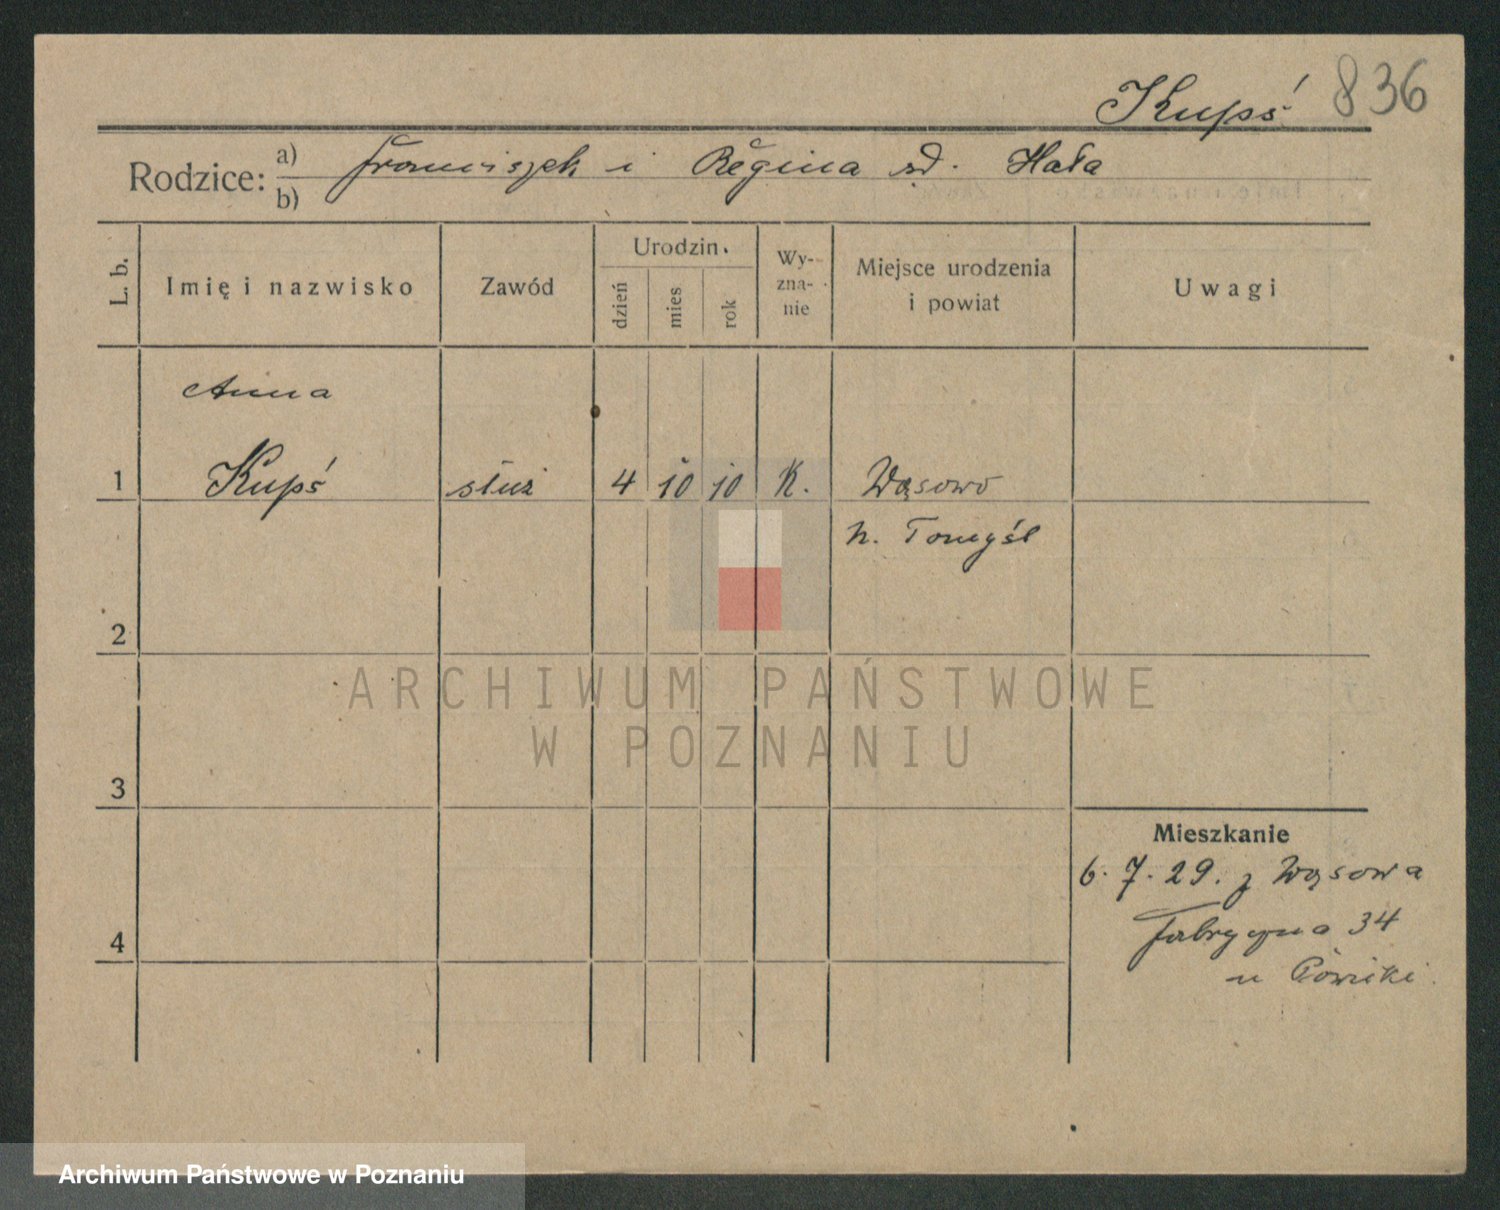 836
Kupś
Rodzice: a) Franciszek i Regina sd. Hała
b)
L. b. Imię i nazwisko Zawód Urodzin. dzień mies rok Wy-zna-nie Miejsce urodzenia i powiat Uwagi
Anna
1 Kupś służ 4 10 10 K. Wąsowo
n. Tomyśl
2
ARCHIWUM PAŃSTWOWE
W POZNANIU
3
Mieszkanie
6. 7. 29. z Wąsowa
4 Fabryczna 34
u
Archiwum Państwowe w Poznaniu